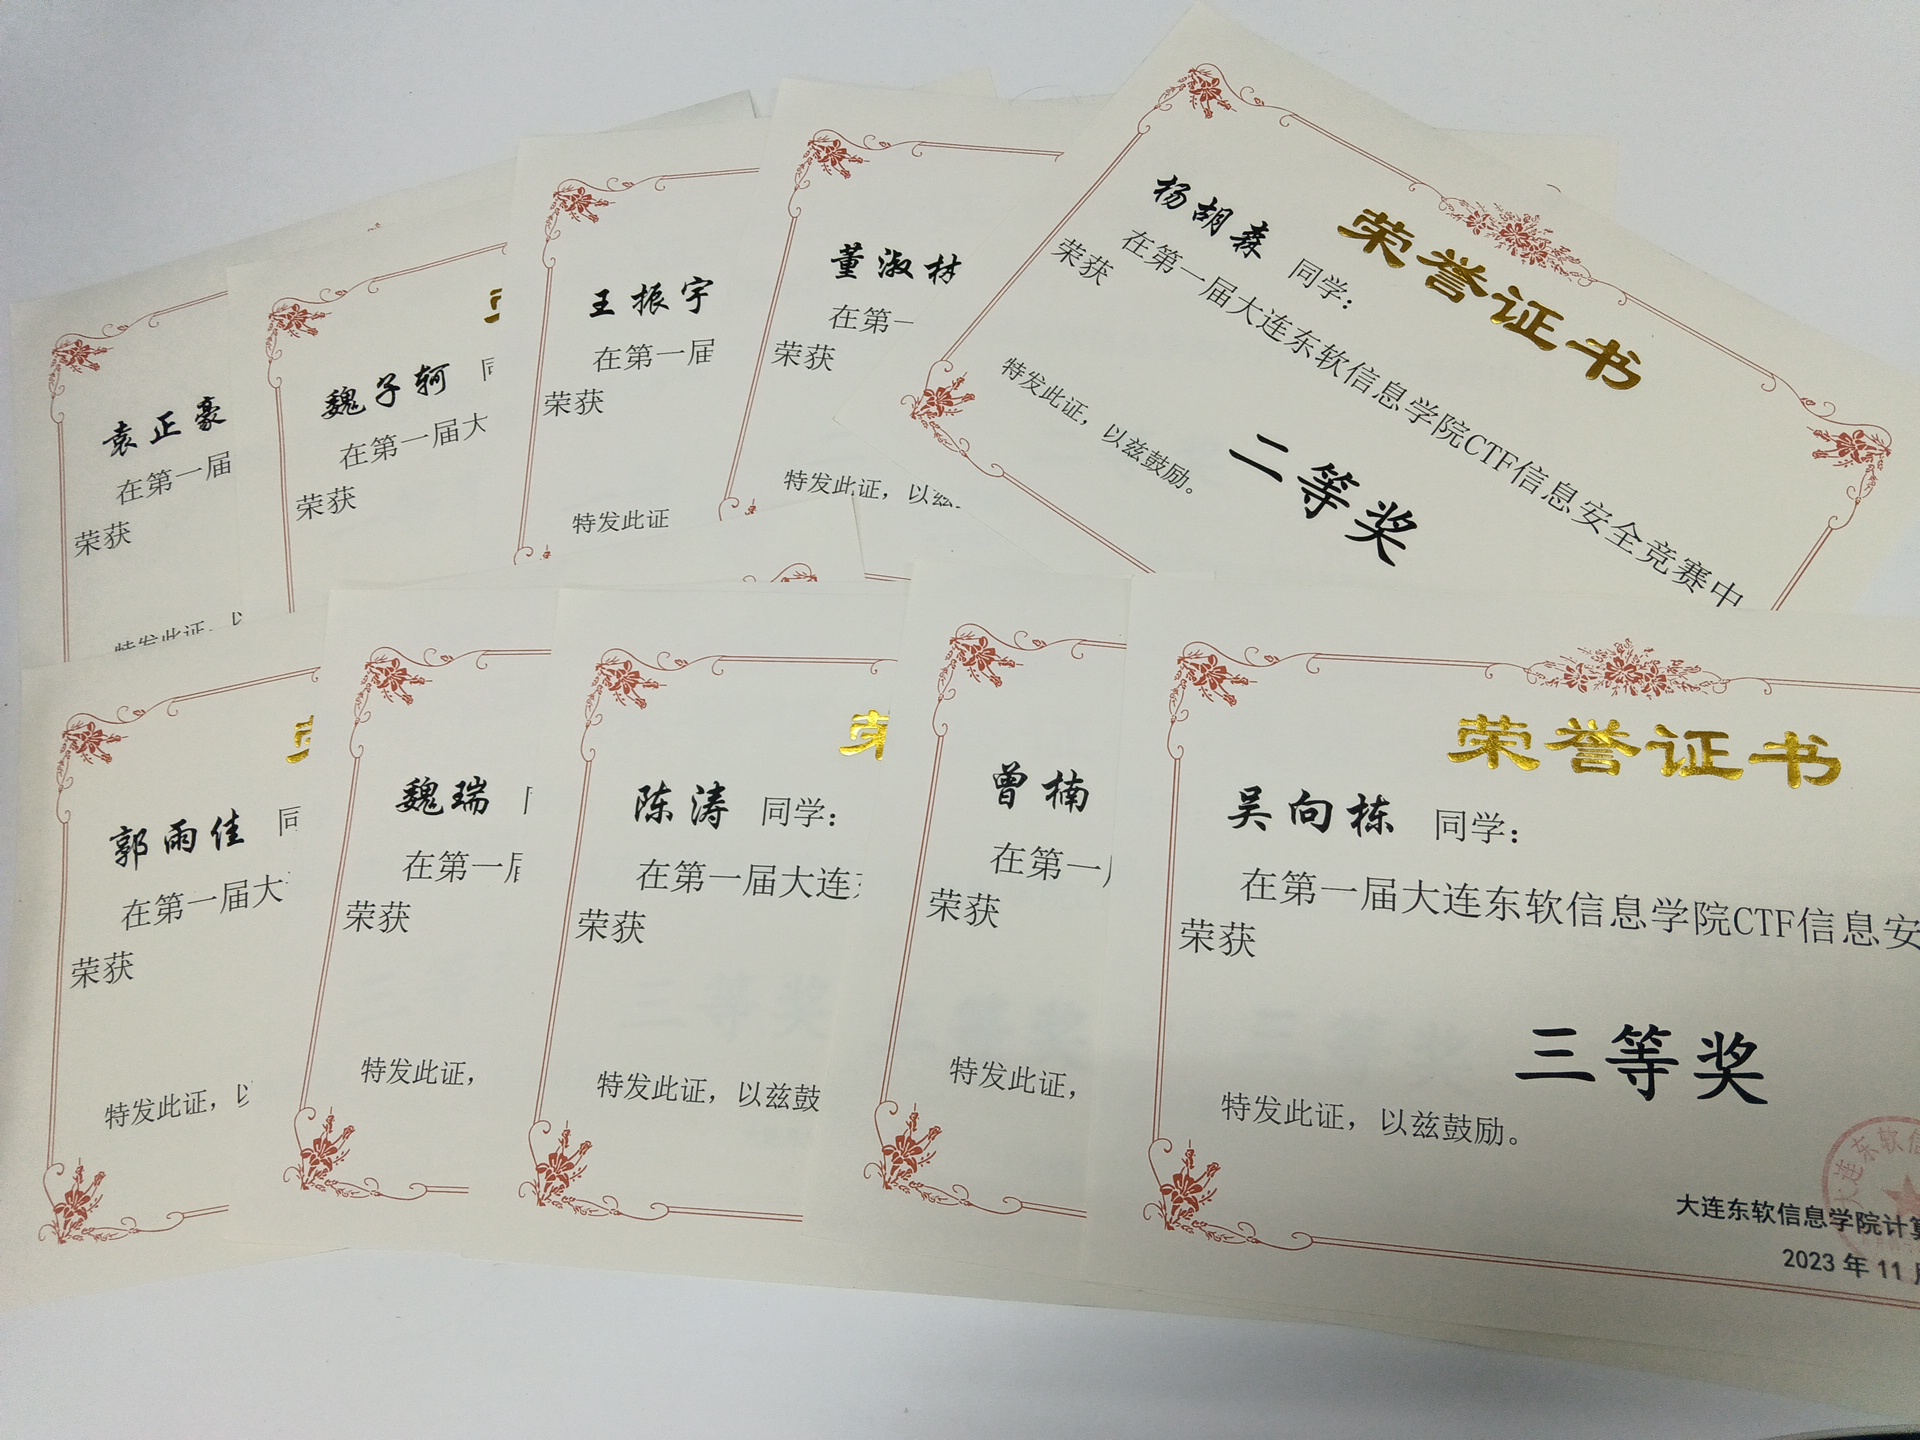 袁正豪
在第一届
荣获
特发此证，以
魏子轲 同
在第一届大
荣获
王振宇
在第一届
荣获
特发此证
董淑材
在第一
荣获
特发此证，以兹
荣誉证书
杨胡森 同学：
在第一届大连东软信息学院CTF信息安全竞赛中
荣获
二等奖
特发此证，以兹鼓励。
郭雨佳 同
在第一届大
荣获
特发此证，以
魏瑞
在第一届
荣获
特发此证，
荣
陈涛 同学：
在第一届大连东
荣获
特发此证，以兹鼓
曾楠
在第一
荣获
特发此证，
荣誉证书
吴向栋 同学：
在第一届大连东软信息学院CTF信息安
荣获
三等奖
特发此证，以兹鼓励。
大连东软信
大连东软信息学院计算
2023 年 11 月